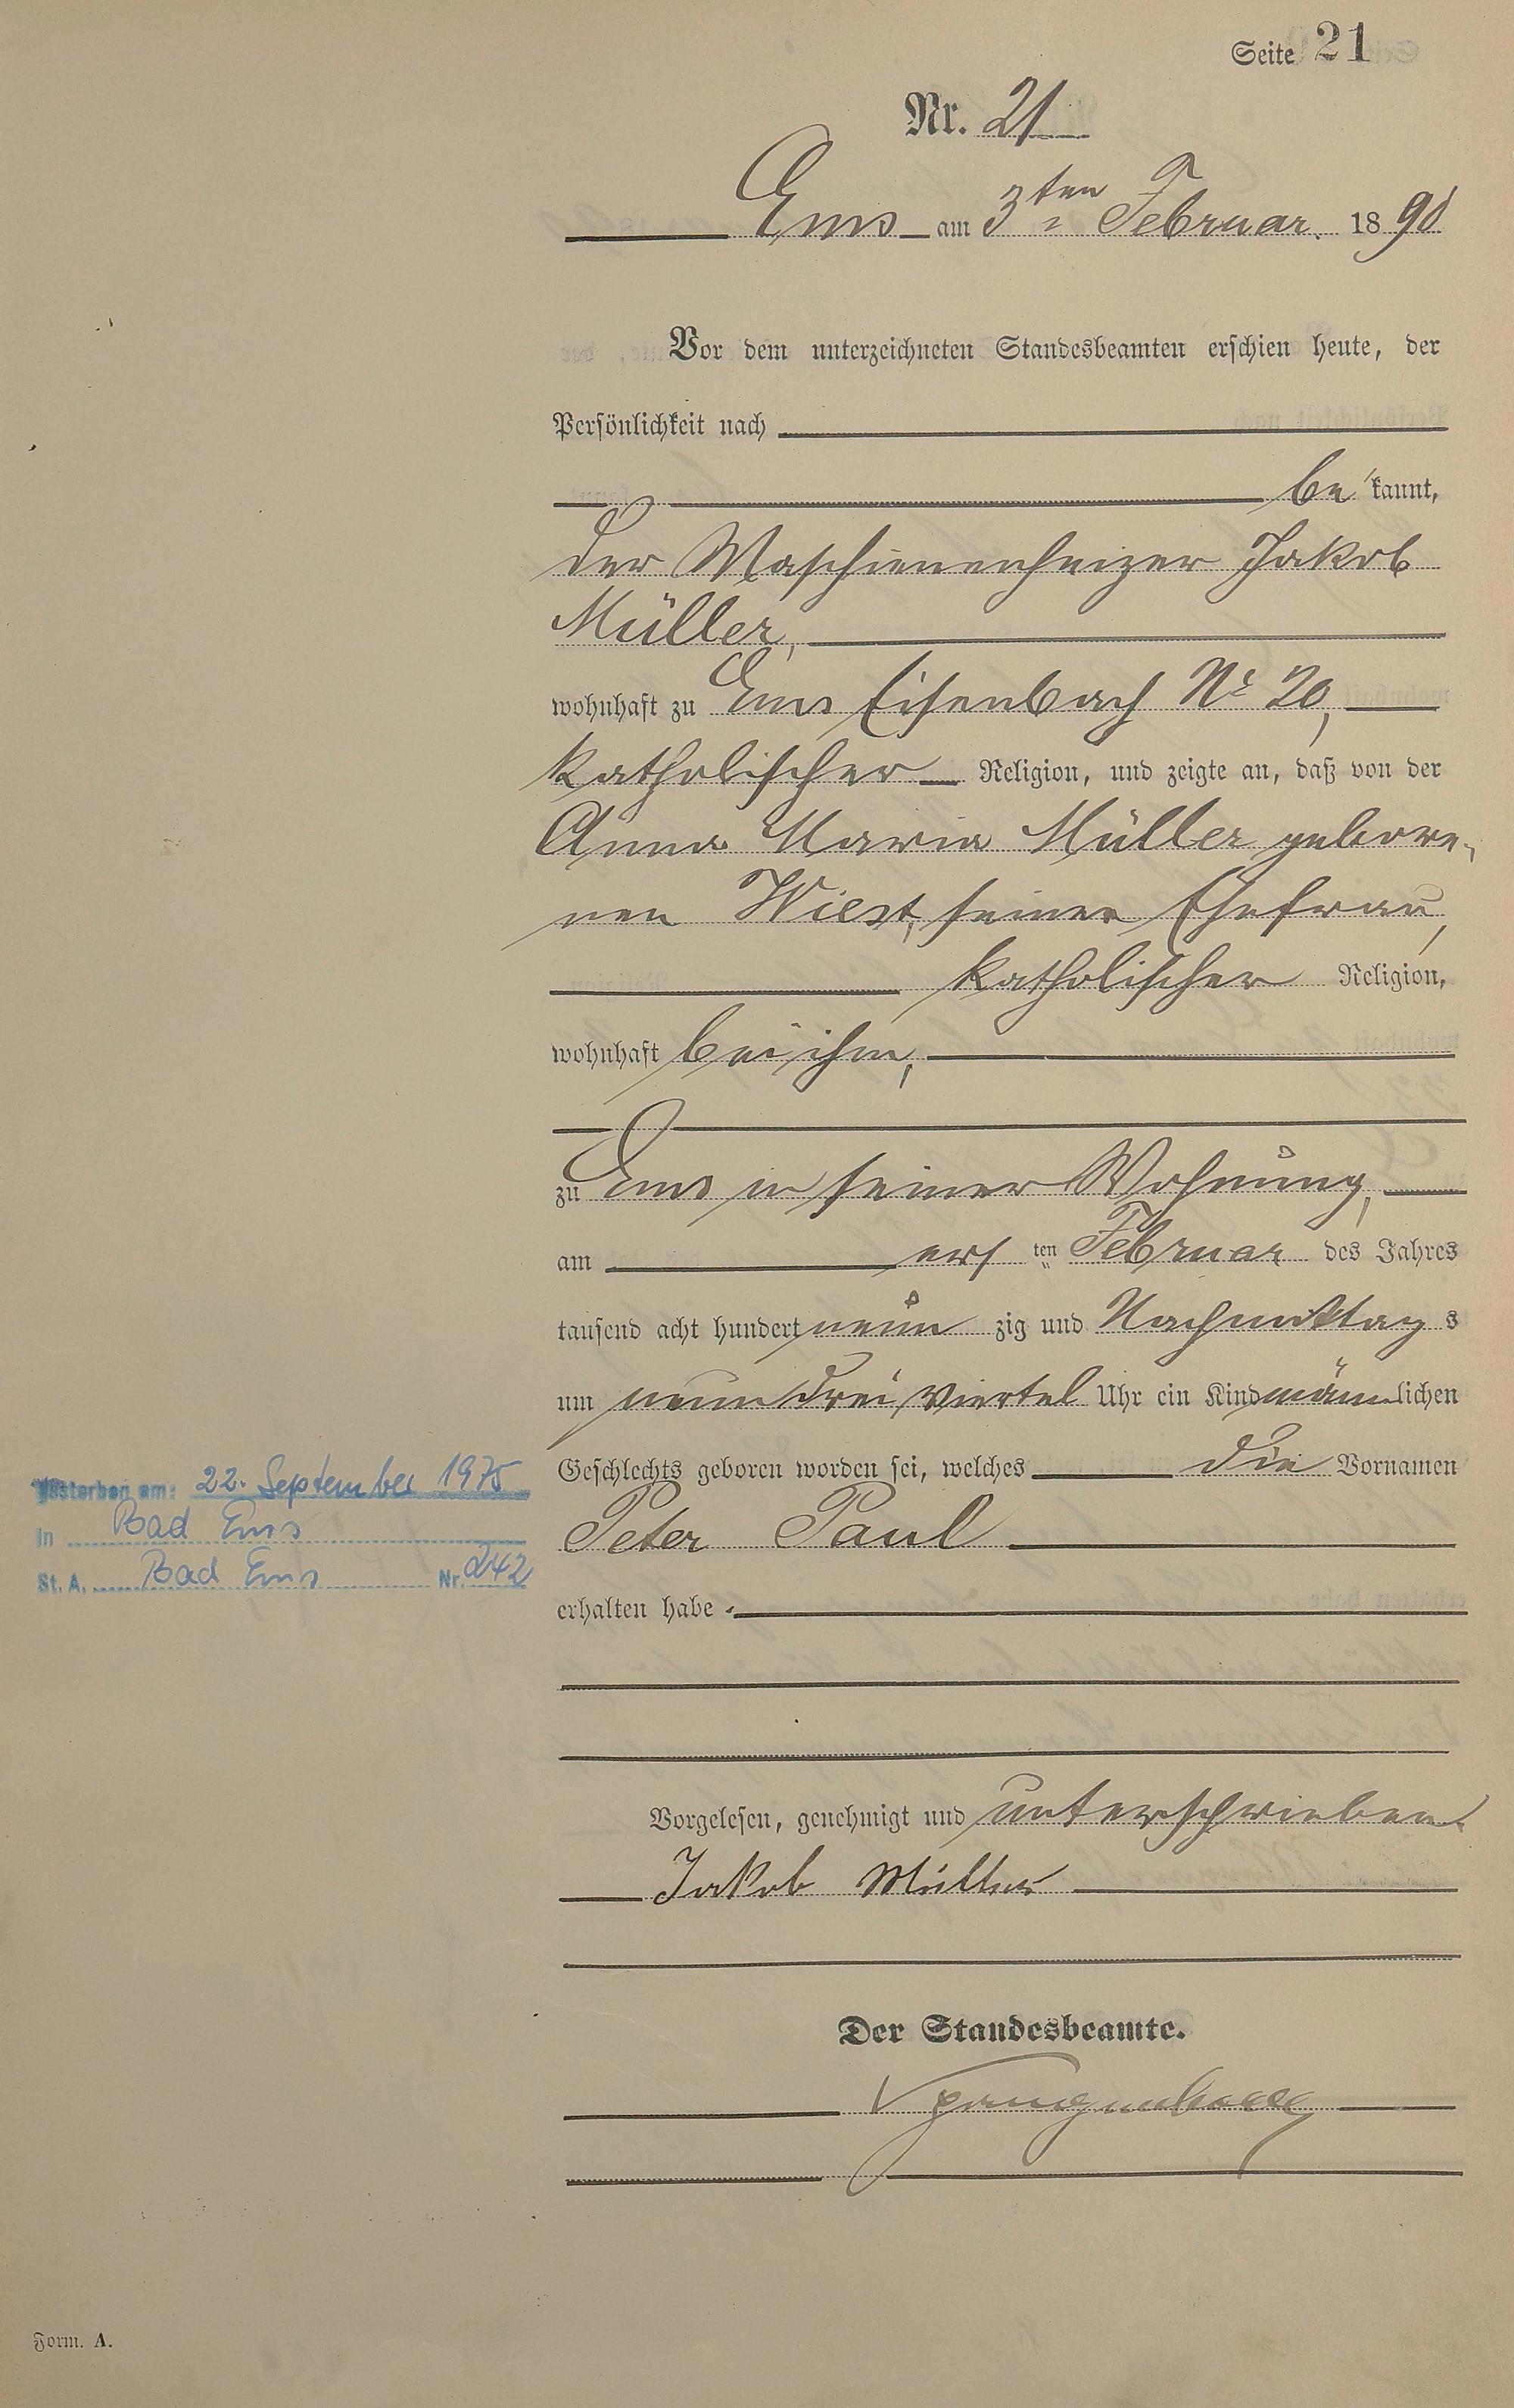 Seite 21
Nr. 21
Ems am 3ten Februar. 1890
Vor dem unterzeichneten Standesbeamten erschien heute, der
Persönlichkeit nach
be kannt,
der Maschienenheizer Jakob
Müller,
wohnhaft zu Ems Eisenbach No 20,
katholischer Religion, und zeigte an, daß von der
Anna Maria Müller gebore-
nen Wiest, seiner Ehefrau,
katholischer Religion,
wohnhaft bei ihm,
zu Ems in seiner Wohnung,
am ers ten Februar des Jahres
tausend acht hundert neun zig und Nachmittag s
um neun drei viertel Uhr ein Kind männ lichen
Geschlechts geboren worden sei, welches die Vornamen
Peter Paul
erhalten habe.
Gestorben am: 22. September 1975
in Bad Ems
St. A. Bad Ems Nr. 242
Vorgelesen, genehmigt und unterschrieben
Jakob Müller
Der Standesbeamte.
Form. A.